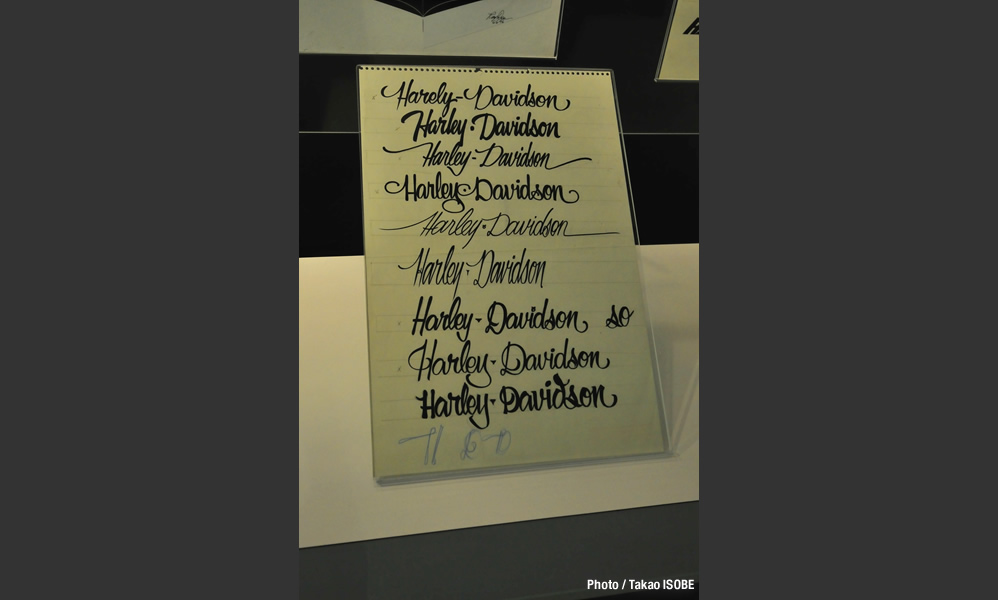 Harely-Davidson
Harley·Davidson
Harley-Davidson
Harley·Davidson
Harley·Davidson
Harley·Davidson
Harley-Davidson so
Harley-Davidson
Harley·Davidson
H D
Photo / Takao ISOBE